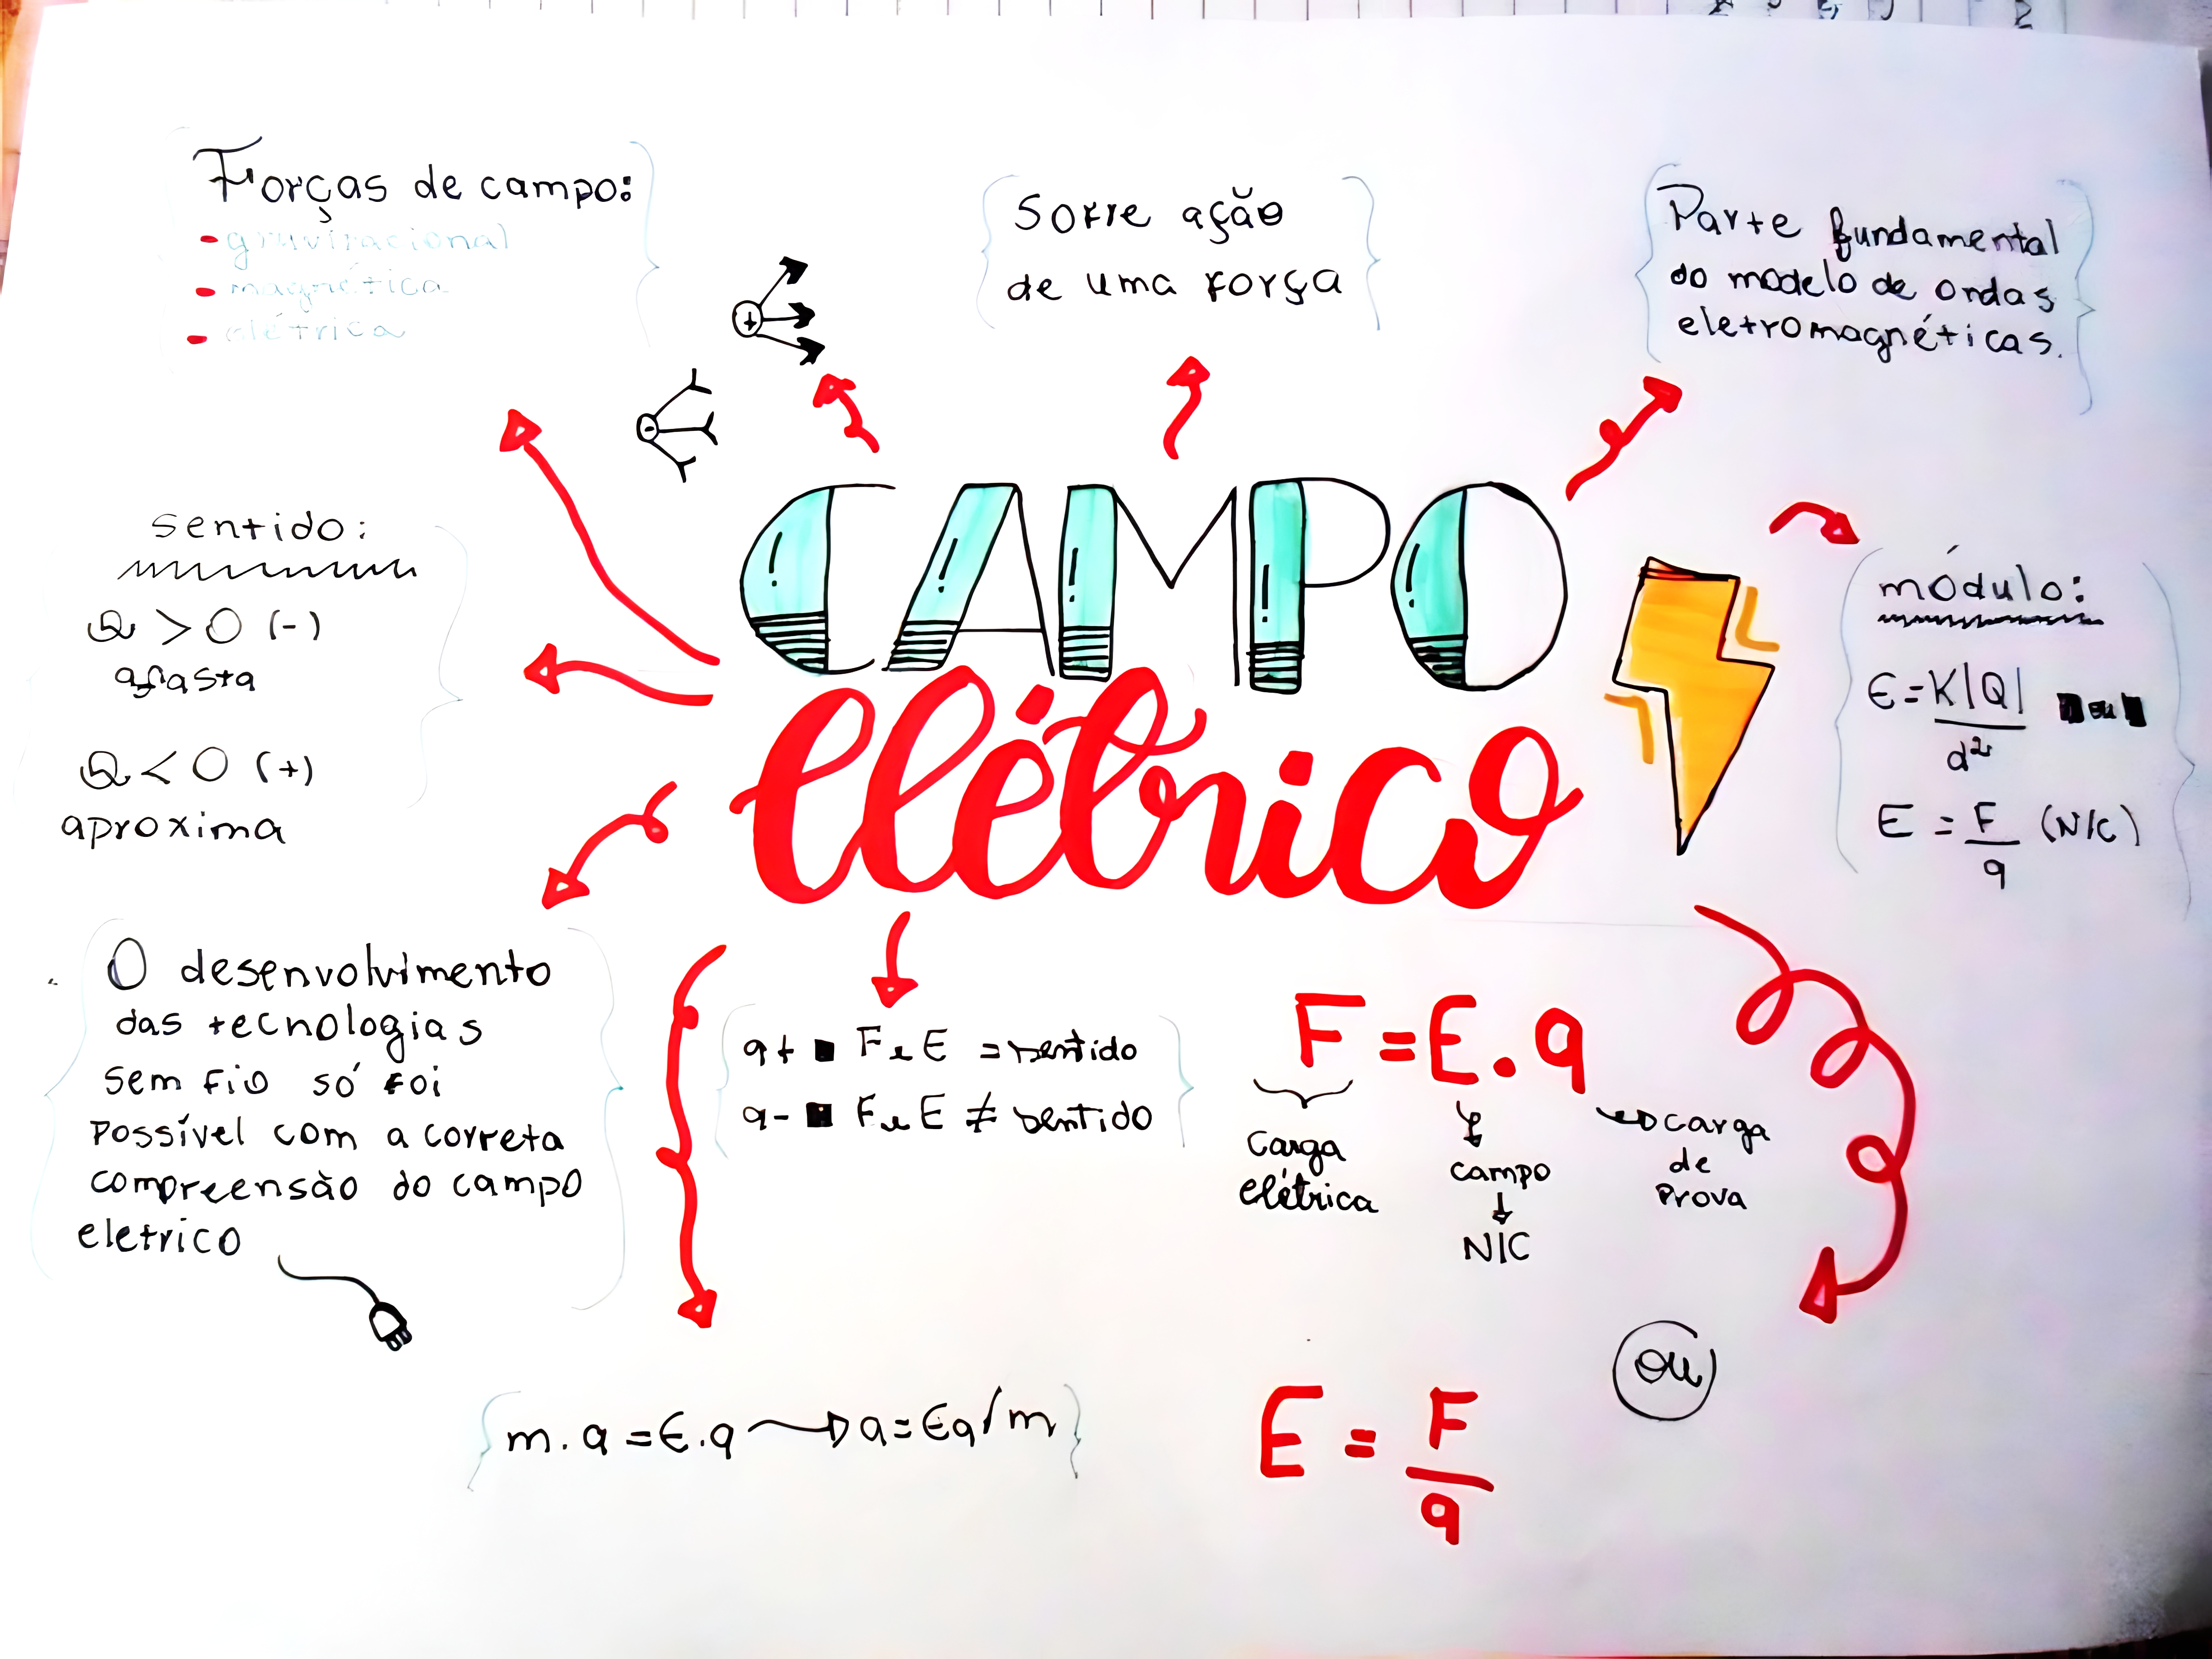 Forças de campo:
- gravitacional
- magnética
- elétrica
Sofre ação
de uma força
Parte fundamental
do modelo de ondas
eletromagnéticas.
+
-
CAMPO
elétrico
sentido:
Q > 0 (-)
afasta
Q < 0 (+)
aproxima
módulo:
E = K|Q| ou
d²
E = F (N/C)
q
O desenvolvimento
das tecnologias
sem fio só foi
possível com a correta
compreensão do campo
eletrico
q+ ■ F e E = sentido
q- ■ F e E ≠ sentido
F = E . q
Carga
elétrica
campo
N/C
carga
de
prova
m . a = E . q → a = Eq/m
ou
E = F
q